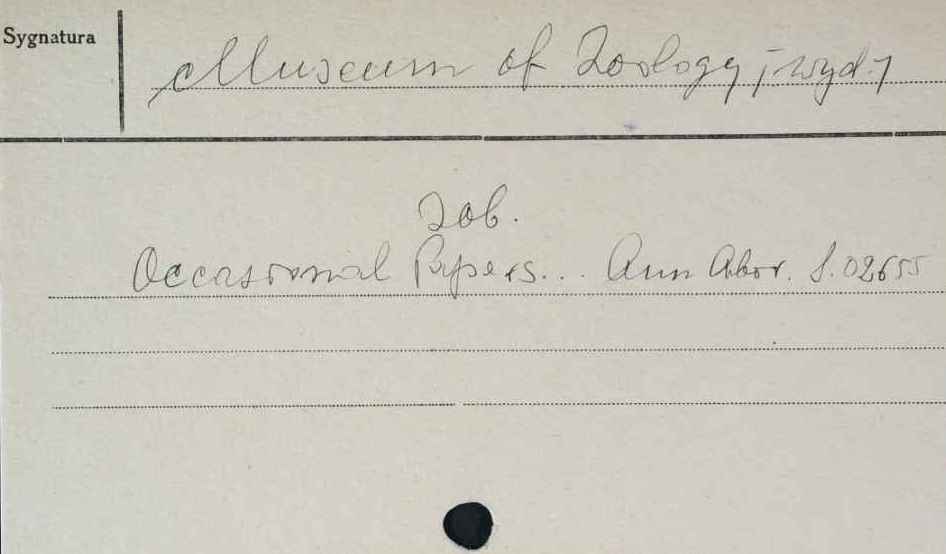 Sygnatura
Museum of Zoology; wyd.;
Zob.
Occasional Papers... Ann Abor. S.02655